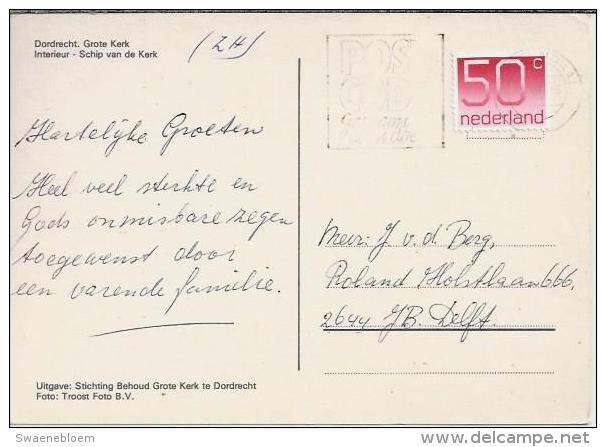 Dordrecht. Grote Kerk
Interieur - Schip van de Kerk
(ZH)
POS
50 c
nederland
Hartelijke Groeten
Heel veel sterkte en
Gods onmisbare zegen
toegewenst door
een varende familie.
Mevr. J v.d. Berg,
Roland Holstlaan 666,
2644 JB. Delft.
Uitgave: Stichting Behoud Grote Kerk te Dordrecht
Foto: Troost Foto B.V.
Swaenebloem
delcampe.net